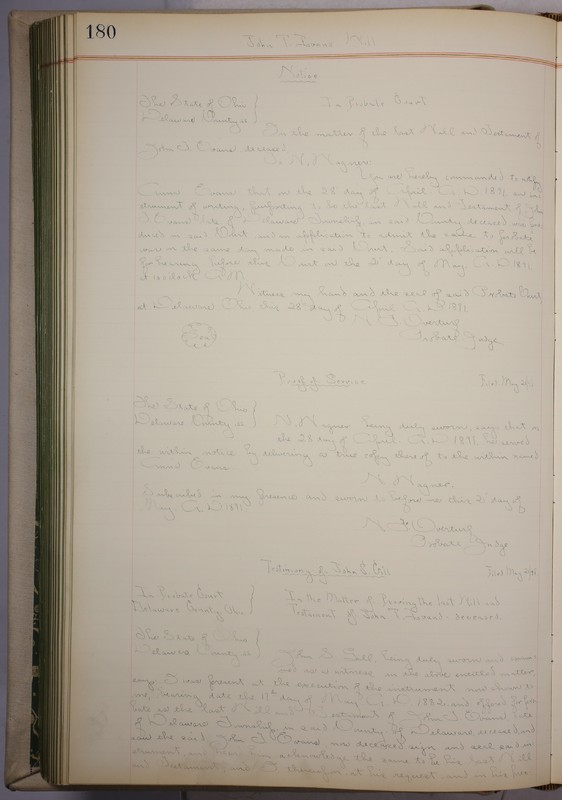 180
John T. Evans Will
Notice
The State of Ohio } In Probate Court
Delaware County ss }
In the matter of the last Will and Testament of
John T. Evans deceased
To N. Wagner:
You are hereby commanded to notify
Evans that on the 28" day of April A. D. 1891 an in-
strument of writing, purporting to be the last Will and Testament of John
T. Evans late of Delaware Township in said County deceased, was pro-
duced in said Court and an application to admit the same to probate
was on the same day made in said Court. Said application will be
for hearing before this Court on the 2" day of May A. D. 1891
at o'clock M.
Witness my hand and the seal of said Probate Court
at Delaware Ohio this 28" day of April A. D. 1891
Seal
Probate Judge
Proof of Service Filed May 2/91
The State of Ohio }
Delaware County ss } N. Wagner being duly sworn, says that on
the 28 day of April A. D. 1891 he served
the within notice by delivering a true copy thereof to the within named
Evans.
N. Wagner.
Subscribed in my presence and sworn to before me this 2" day of
May A. D. 1891
Probate Judge
Testimony of John S. Gill Filed May 2/91
In Probate Court } In the Matter of Proving the last Will and
Delaware County Ohio } Testament of John T. Evans deceased
The State of Ohio }
Delaware County ss } John S. Gill, being duly sworn and exam-
ined as a witness in the above entitled matter,
says: I was present at the execution of the instrument now shown to
me, bearing date the 17th day of May A. D. 1882 and offered for pro-
bate as the last Will and Testament of John T. Evans late
of Delaware Township in said County of Delaware, deceased and
saw the said John T. Evans now deceased sign and seal said in-
strument and heard him acknowledge the same to be his last Will
and Testament, and I thereupon, at his request and in his pres-